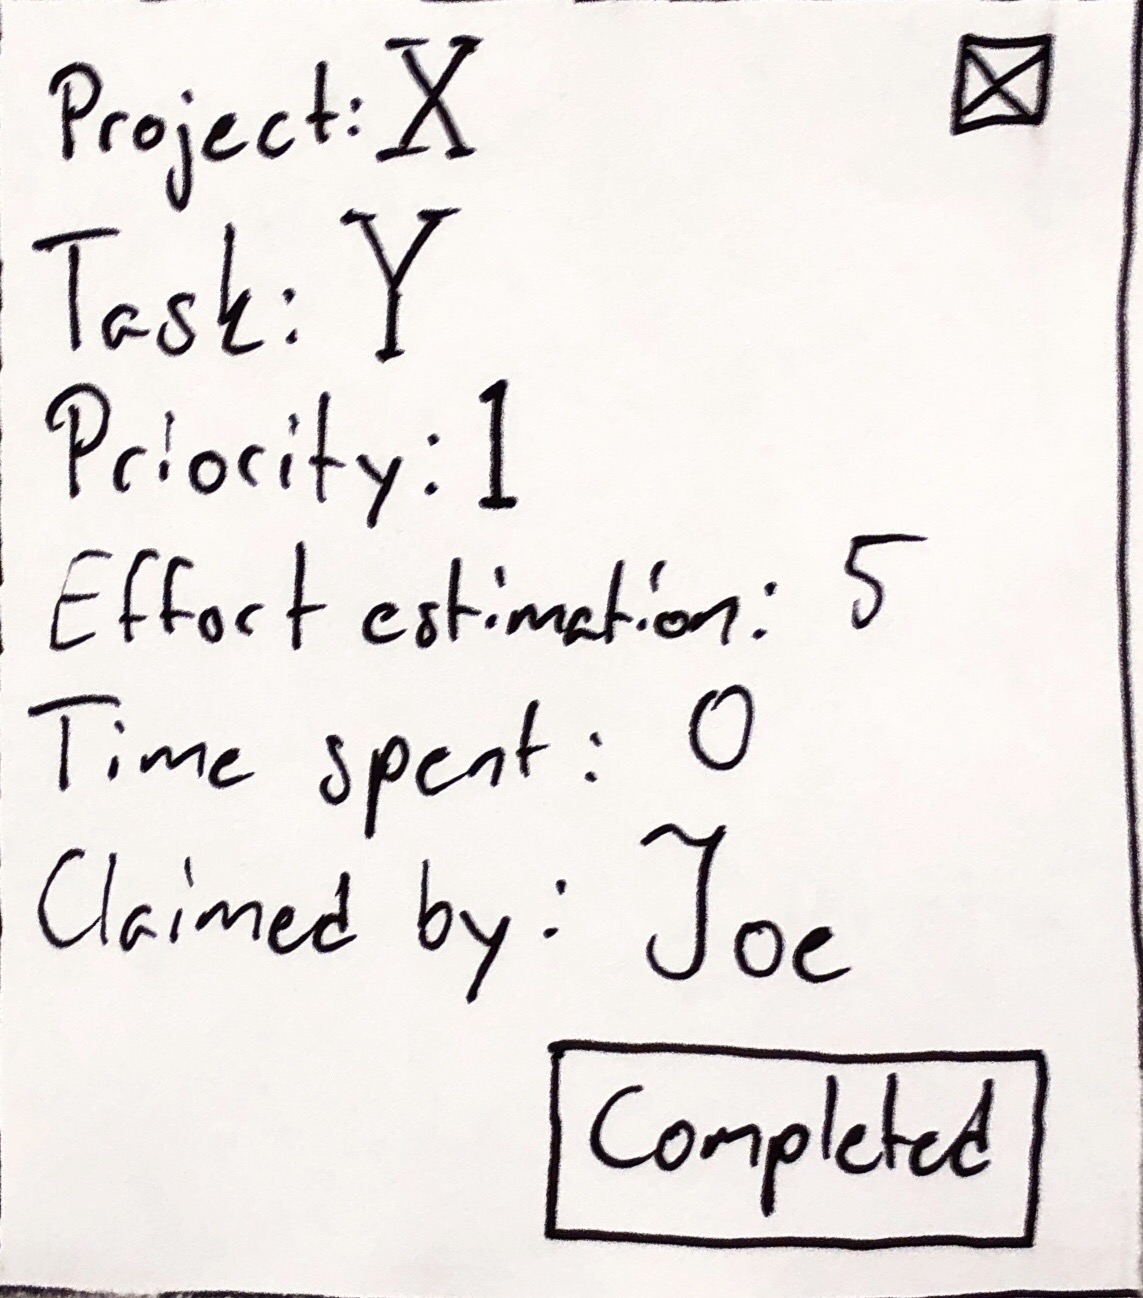 Project: X
Task: Y
Priority: 1
Effort estimation: 5
Time spent: 0
Claimed by: Joe
Completed